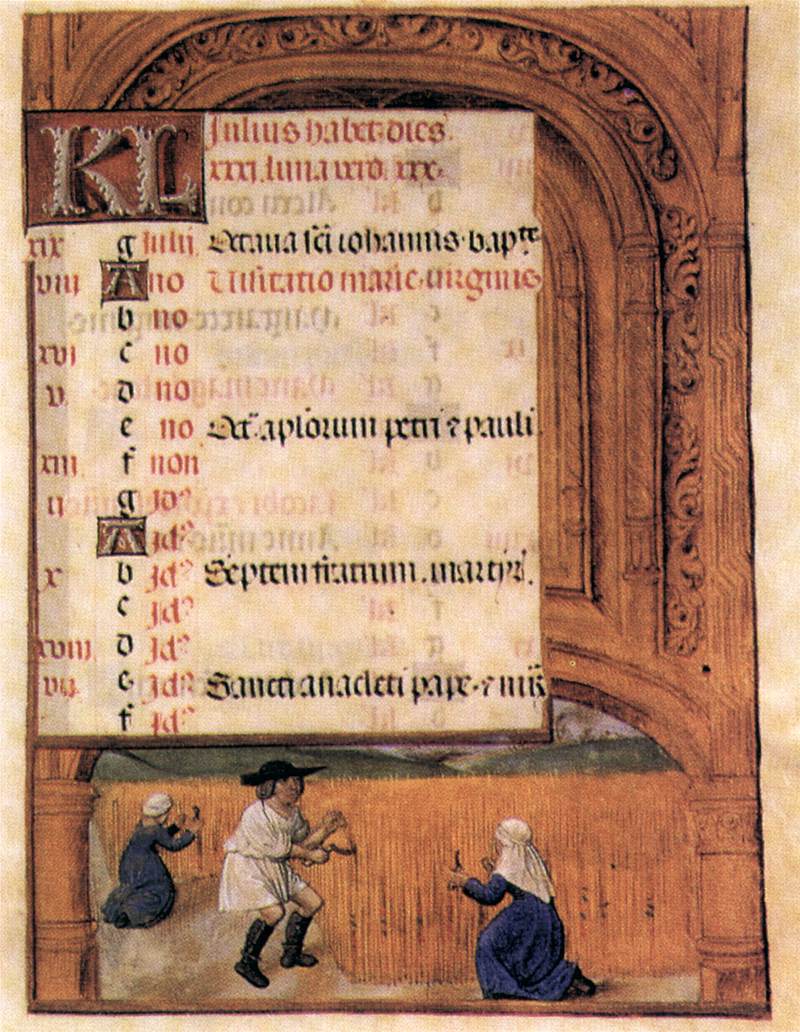 KL Julius habet dies
xxxi. luna vero. xxx.
xix g Julii Octava sci iohannis bapte
viii A no Visitatio marie virginis
b no
xvi c no
v d no
e no Oct. aplorum petri ⁊ pauli
xiii f non
ii g Id9
A Id9
x b Id9 Septem fratrum. martyr.
c Id9
xviii d Id9
vii e Id9 Sancti anacleti pape ⁊ mr
f Id9